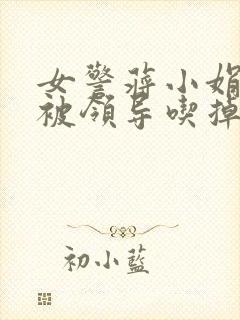 女警蒋小娟
被领导喫掉
初小藍